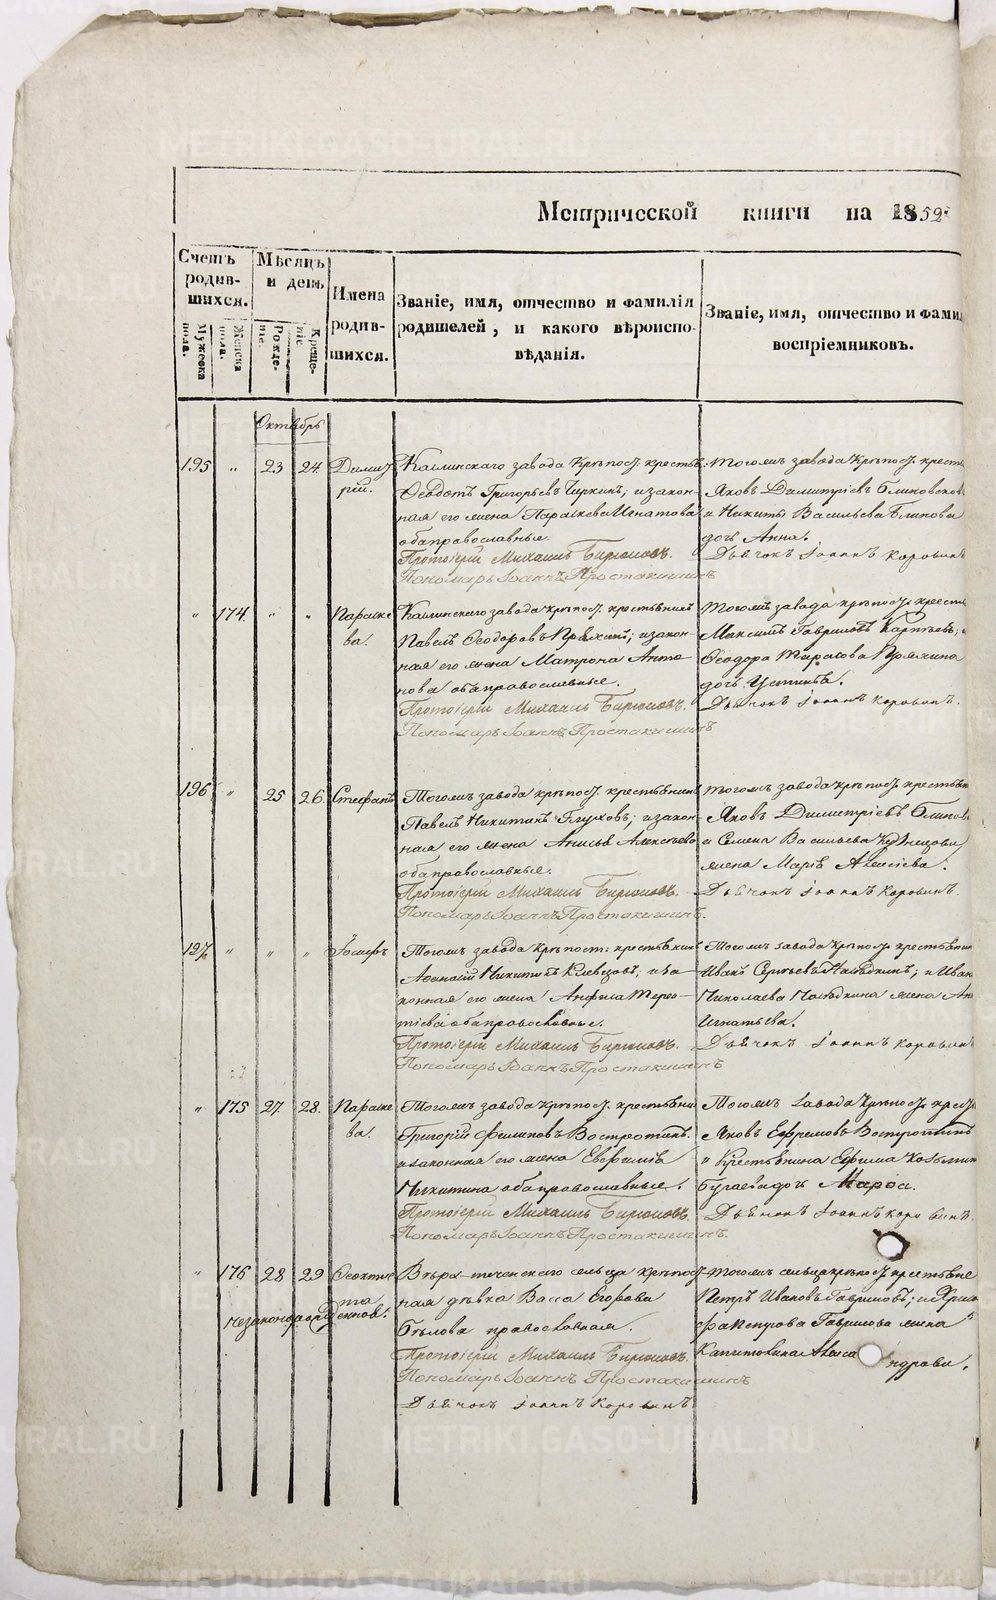 METRIKI.GASO-URAL.RU
Метрической книги на 1852
Счетъ родив-шихся.
Мужеска пола.
Женска пола.
Мѣсяцъ и день
Рожде-нія.
Креще-нія.
Имена родив-шихся.
Званіе, имя, отчество и фамилія
родителей, и какого вѣроиспо-
вѣданія.
Званіе, имя, отчество и фами
воспріемниковъ.
Октябрь
195 " 23 24 Димит
рій.
Каслинскаго завода крѣпос. крестьян
Ѳеодотъ Григорьевъ Чиркинъ; и закон-
ная его жена Параскева Игнатова
оба православные.
Протоіерей Михаилъ Бирюковъ.
Пономарь Іоаннъ Простакишинъ
Тогожъ завода крѣпос. кресть
Яковъ Димитріевъ Блиновсков
и Никиты Васильева Блинова
дочь Анна.
Дьячокъ Іоаннъ Коровинъ
" 174 " " Параске
ва.
Каслинскаго завода крѣпос. крестьянинъ
Павелъ Ѳеодоровъ Пряхинъ; и закон-
ная его жена Матрона Анто
нова оба православные.
Протоіерей Михаилъ Бирюковъ.
Пономарь Іоаннъ Простакишинъ
Тогожъ завода крѣпос. крестьян
Максимъ Гавриловъ Карпѣевъ; и
Ѳеодора Тарасова Пряхина
дочь Устинья.
Дьячокъ Іоаннъ Коровинъ.
196 " 25 26 Стефанъ
Тогожъ завода крѣпос. крестьянин
Павелъ Никитинъ Глуховъ; и закон-
ная его жена Анисья Алексѣева
оба православные.
Протоіерей Михаилъ Бирюковъ.
Пономарь Іоаннъ Простакишинъ.
Тогожъ завода крѣпос. крестьян
Яковъ Димитріевъ Блинов
и Семена Васильева Кузнецова
жена Марія Алексіева.
Дьячокъ Іоаннъ Коровинъ.
197 " " " Іосифъ
Тогожъ завода крѣпост. крестьянин
Афанасій Никитинъ Клевцовъ; и за-
конная его жена Анфиса Терен-
тіева оба православные.
Протоіерей Михаилъ Бирюковъ.
Пономарь Іоаннъ Простакишинъ
Тогожъ завода крѣпос. крестьянин
Иванъ Сергѣевъ Налѣдкинъ; и Иван
Николаева Налѣдкина жена Ан
Игнатьева.
Дьячокъ Іоаннъ Коровинъ
" 175 27 28 Параске
ва.
Тогожъ завода крѣпос. крестьянин
Григорій Филиповъ Востротинъ
и законная его жена Евфимія
Никитина оба православные.
Протоіерей Михаилъ Бирюковъ.
Пономарь Іоаннъ Простакишинъ.
Тогожъ завода крѣпос. крест
Яковъ Ефремовъ Востротинъ
и крестьянина Ефима Козьмин
Бугаева дочь Марѳа.
Дьячокъ Іоаннъ Коровинъ.
" 176 28 29 Ѳеоктис
та
незаконнорожденноя.
Верх-теченскаго сельца крѣпос-
ная дѣвка Васса Егорова
Бѣлова православная.
Протоіерей Михаилъ Бирюковъ.
Пономарь Іоаннъ Простакишинъ
Дьячокъ Іоаннъ Коровинъ
Тогожъ сельца крѣпос. крестьяне
Петръ Ивановъ Гавриловъ; и
Петрова Гаврилова жена
Капитолина Александрова.